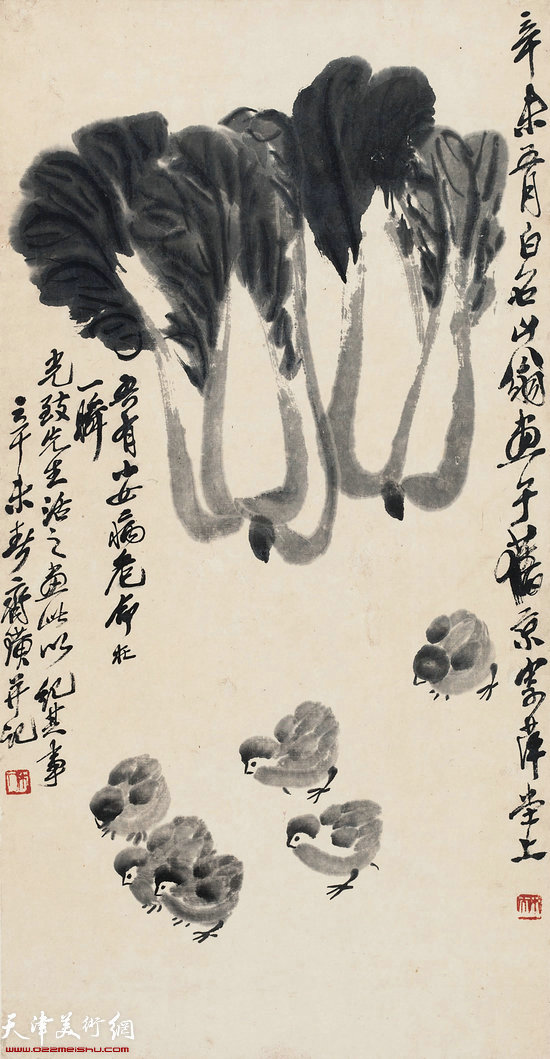 辛未五月白石山翁画于旧京寄萍堂上
吾有小女病危命在
一瞬
光致先生活之画此以纪其事
辛未春齐璜并记
天津美術網
www.ozzmeishu.com